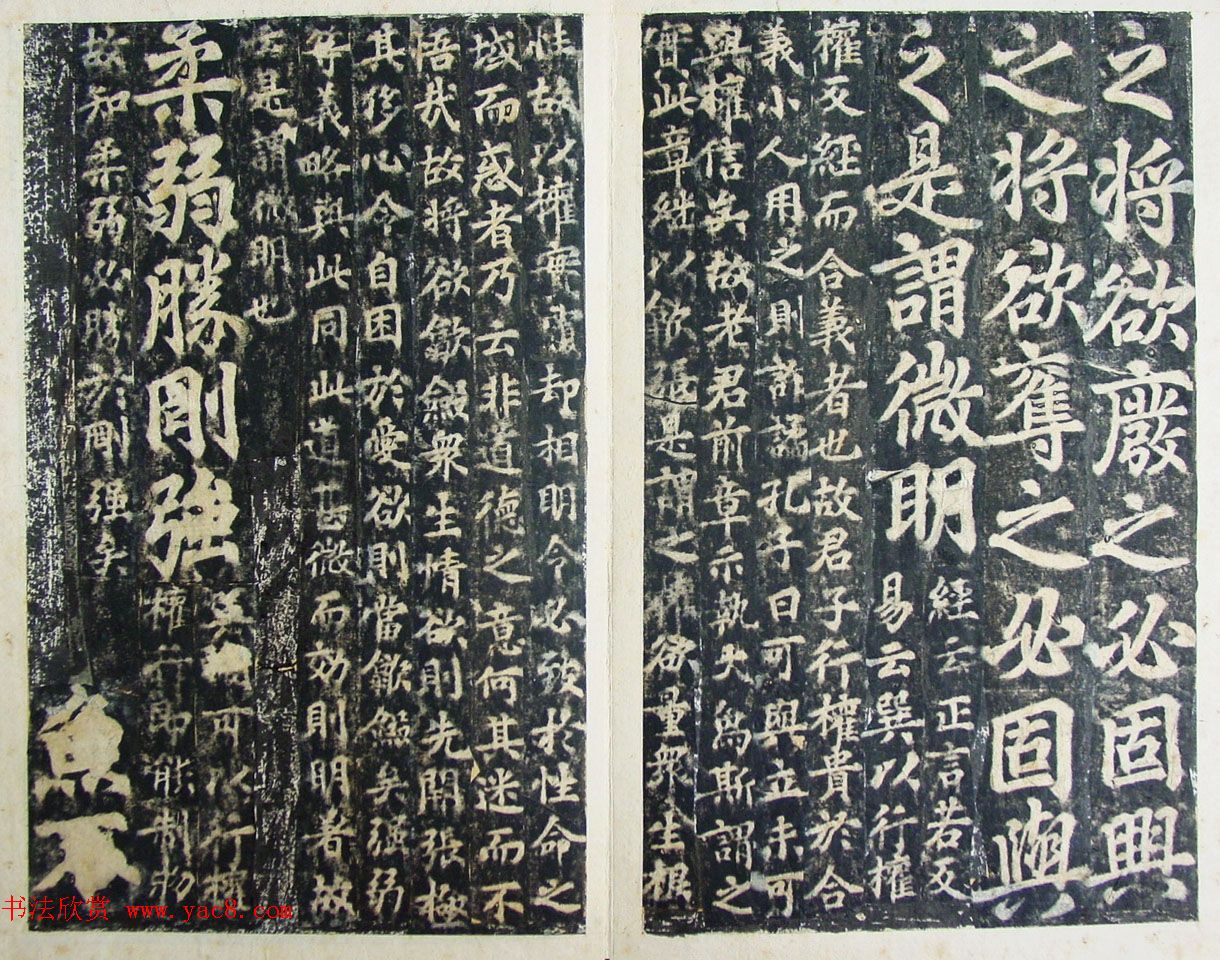 之將欲廢之必固興
之將欲奪之必固與
之是謂微明
經云正言若反
易云巽以行權
權反經而合義者也故君子行權貴於合
義小人用之則詐譎孔子曰可與立未可
與權信矣故老君前章示執大為斯謂之
此章繼以歙張是謂之 欲量眾生根
性故以權 却相明令必致於性命之
域而惑者乃云非道德之意何其迷而不
悟哉故將欲歙斂眾生情欲則先開張極
其侈心令自困於愛欲則當歙斂矣強弱
等義略與此同此道甚微而効則明者故
云是謂微明也
柔弱勝剛強
可以行權
權行即能制物
故知柔弱必勝於剛強矣
魚不
书法欣赏 www.yac8.com